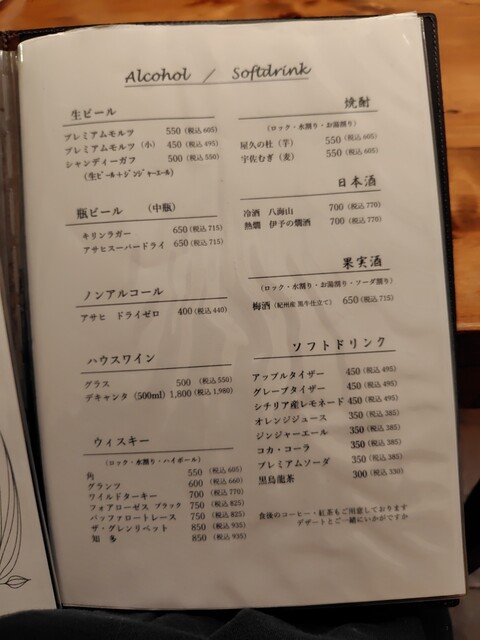 Alcohol / Softdrink
生ビール
プレミアムモルツ 550 (税込 605)
プレミアムモルツ (小) 450 (税込 495)
シャンディーガフ 500 (税込 550)
(生ビール+ジンジャーエール)
瓶ビール (中瓶)
キリンラガー 650 (税込 715)
アサヒスーパードライ 650 (税込 715)
ノンアルコール
アサヒ ドライゼロ 400 (税込 440)
ハウスワイン
グラス 500 (税込 550)
デキャンタ (500ml) 1,800 (税込 1,980)
ウィスキー
(ロック・水割り・ハイボール)
角 550 (税込 605)
グランツ 600 (税込 660)
ワイルドターキー 700 (税込 770)
フォアローゼス ブラック 750 (税込 825)
バッファロートレース 750 (税込 825)
ザ・グレンリベット 850 (税込 935)
知多 850 (税込 935)
焼酎
(ロック・水割り・お湯割り)
屋久の杜 (芋) 550 (税込 605)
宇佐むぎ (麦) 550 (税込 605)
日本酒
冷酒 八海山 700 (税込 770)
熱燗 伊予の燗酒 700 (税込 770)
果実酒
(ロック・水割り・お湯割り・ソーダ割り)
梅酒 (紀州産 黒牛仕立て) 650 (税込 715)
ソフトドリンク
アップルタイザー 450 (税込 495)
グレープタイザー 450 (税込 495)
シチリア産レモネード 450 (税込 495)
オレンジジュース 350 (税込 385)
ジンジャーエール 350 (税込 385)
コカ・コーラ 350 (税込 385)
プレミアムソーダ 350 (税込 385)
黒烏龍茶 300 (税込 330)
食後のコーヒー・紅茶もご用意しております
デザートとご一緒にいかがですか